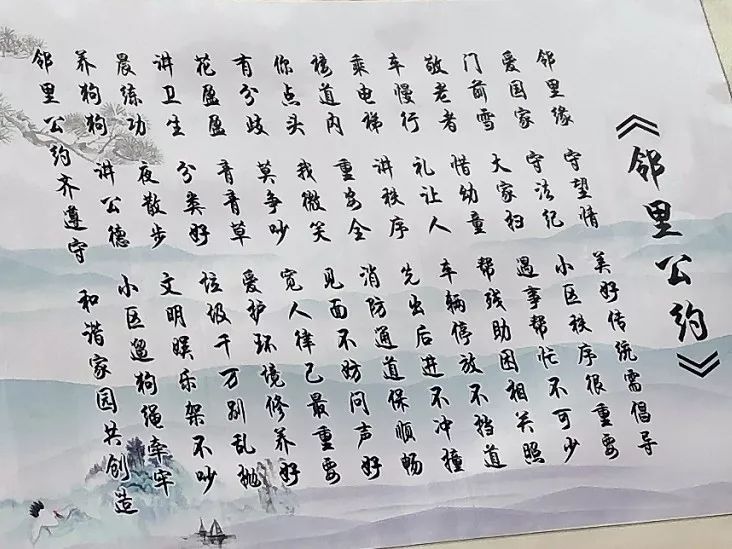 《邻里公约》
邻里缘 守望情 美好传统需倡导
爱国家 守法纪 小区秩序很重要
门前雪 大家扫 遇事帮忙不可少
敬老者 惜幼童 帮残助困相关照
车慢行 礼让人 车辆停放不挡道
乘电梯 讲秩序 先出后进不冲撞
楼道内 重安全 消防通道保顺畅
你点头 我微笑 见面不妨问声好
有分歧 莫争吵 宽人律己最重要
花盈盈 青青草 爱护环境修养好
讲卫生 分类好 垃圾千万别乱抛
晨练功 夜散步 文明娱乐架不吵
养狗狗 讲公德 小区遛狗绳牵牢
邻里公约齐遵守 和谐家园共创造